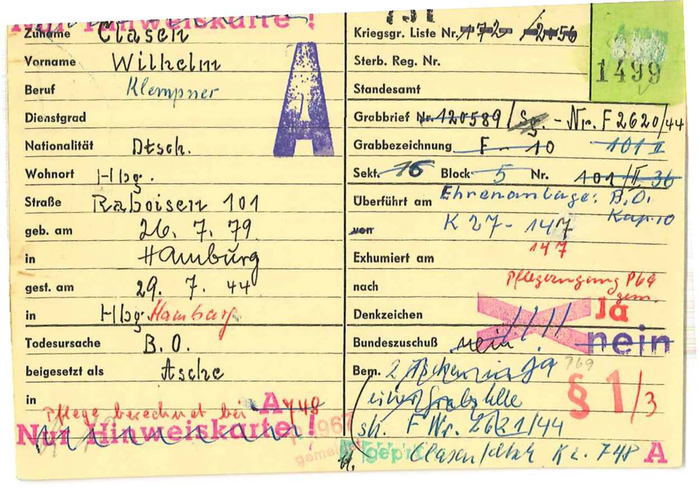 Nur Hinweiskarte !
Zuname Clasen
Vorname Wilhelm
Beruf Klempner
Dienstgrad
Nationalität Dtsch.
Wohnort Hbg.
Straße Raboisen 101
geb. am 26. 7. 79
in Hamburg
gest. am 29. 7. 44
in Hbg Hamburg
Todesursache B. O.
beigesetzt als Asche
in
Pflege berechnet bei A 748
Nur Hinweiskarte !
A
Kriegsgr. Liste Nr. 172- 12056
1499
Sterb. Reg. Nr.
Standesamt
Grabbrief Nr. 120589 / Sg. - Nr. F 2620/44
Grabbezeichnung F - 10 101 II
Sekt. 16 Block 5 Nr. 101 / II. 36
Überführt am Ehrenanlage: B.O.
von K 27 - 147 Kap. 10
Exhumiert am 147
nach
gem.
Denkzeichen Ja
Bundeszuschuß nein nein
Bem. 2
769
§ 1/3
einer Grabstelle
sh. F Nr. 2621/44
1967
gepr.
Clasen K 2. 748 A